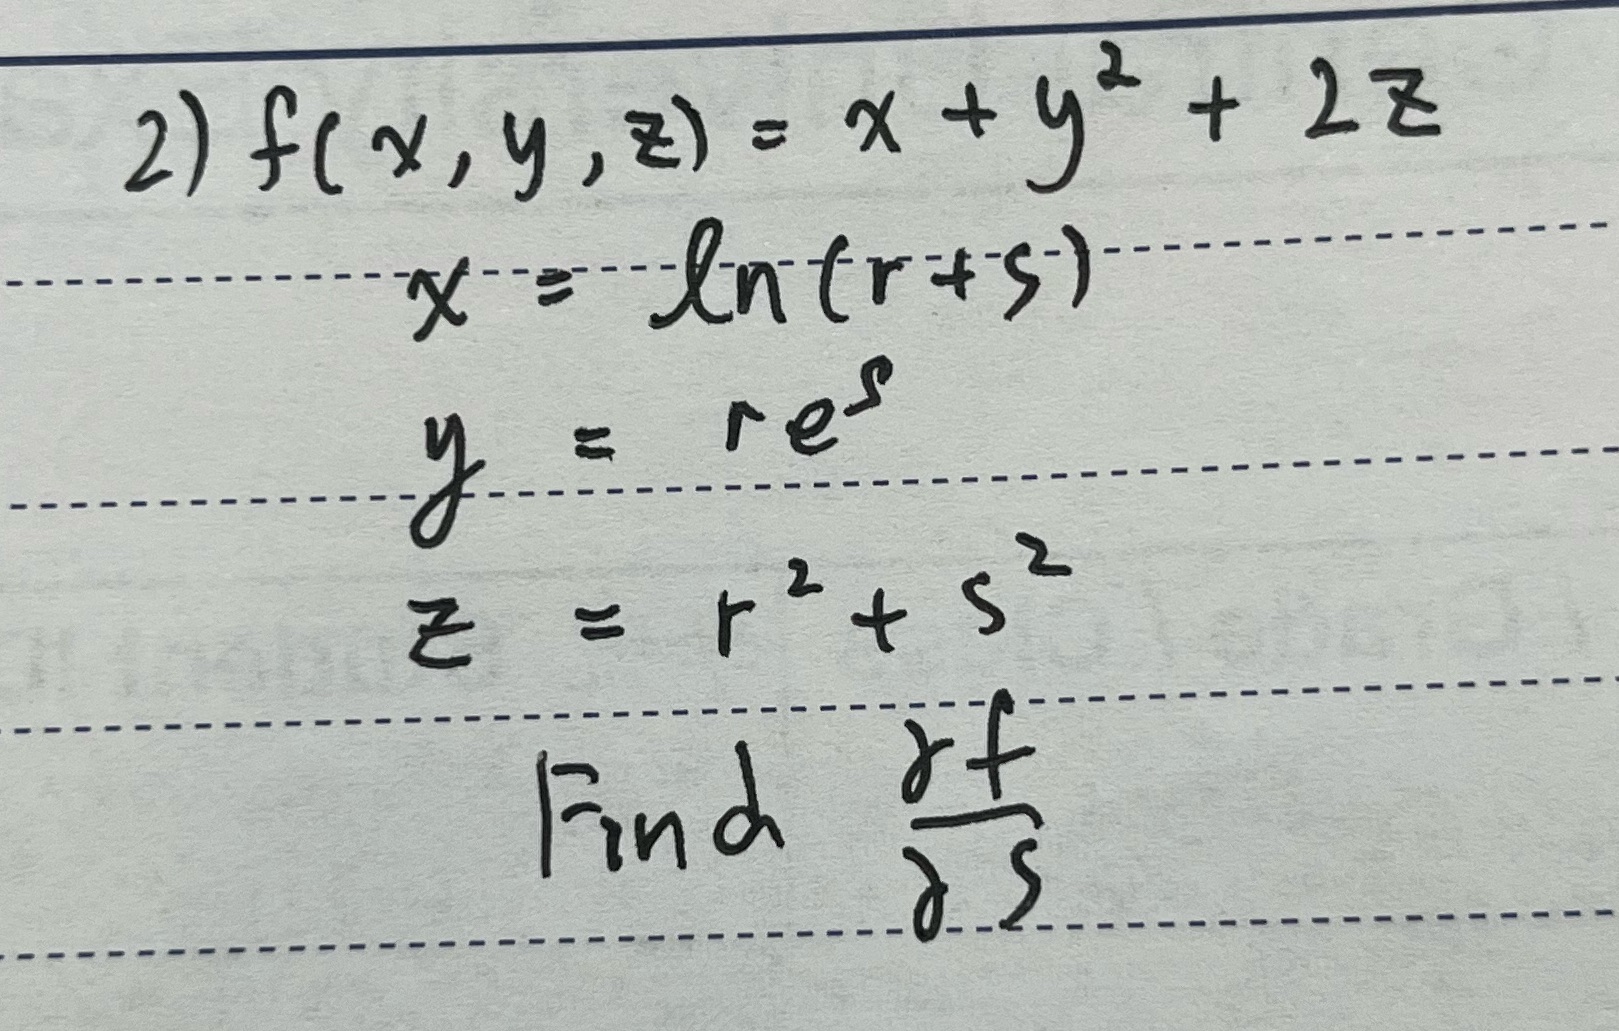 2) f(x, y, z) = x + y² + 2z
x = ln(r+s)
y = re^s
z = r² + s²
Find ∂f/∂s